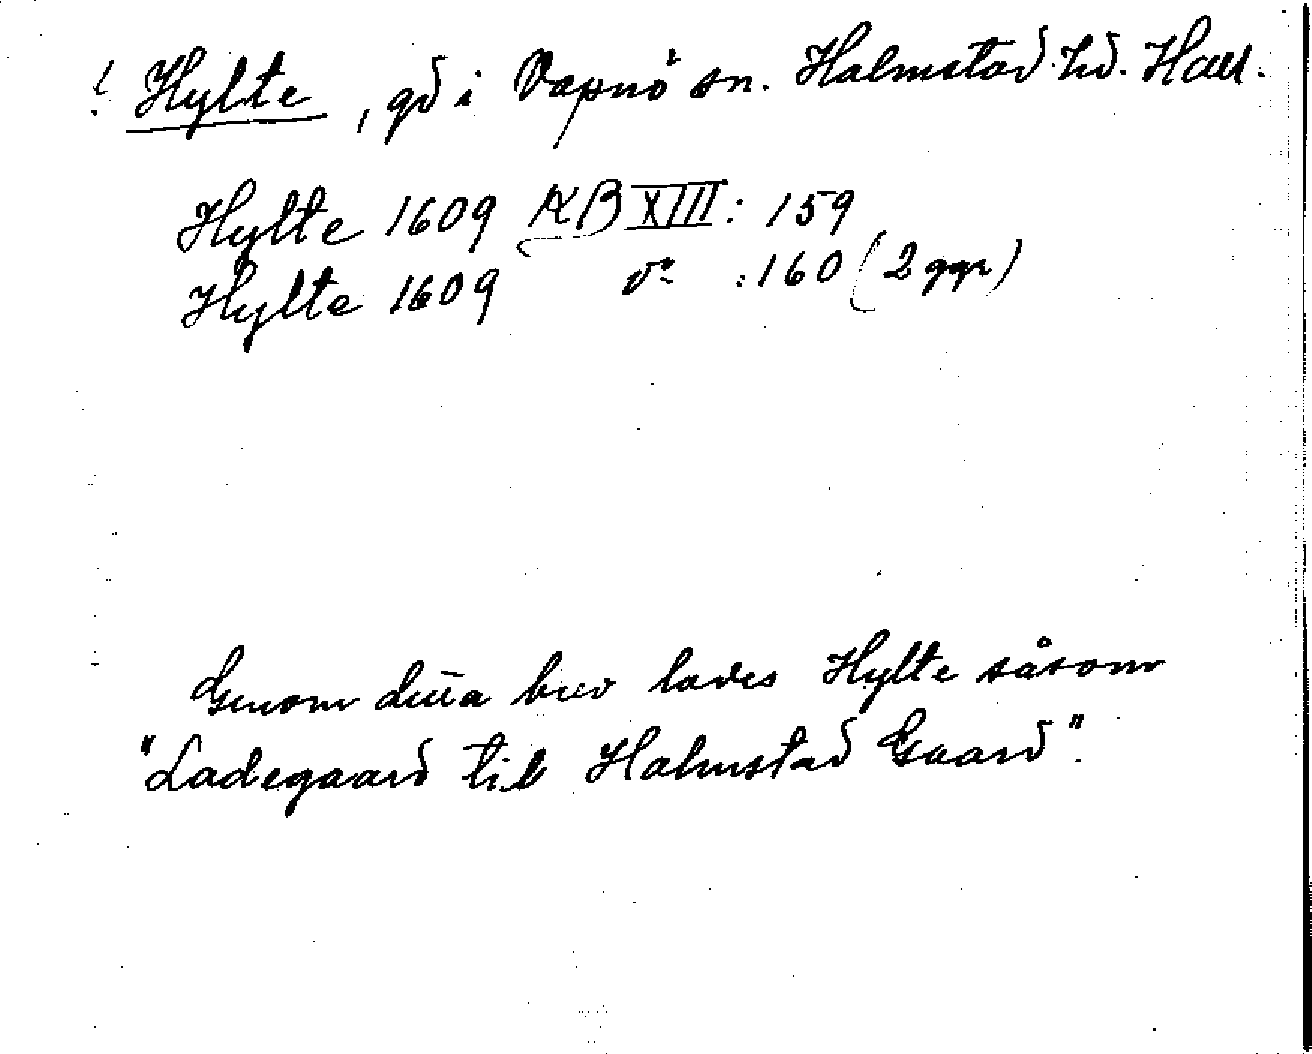 ! Hylte, gd i Vapnö sn. Halmstad hd. Hall.
Hylte 1609 KB XIII: 159
Hylte 1609 do :160 (2 ggr)
Genom detta brev lades Hylte såsom
"Ladegaard til Halmstad Gaard".